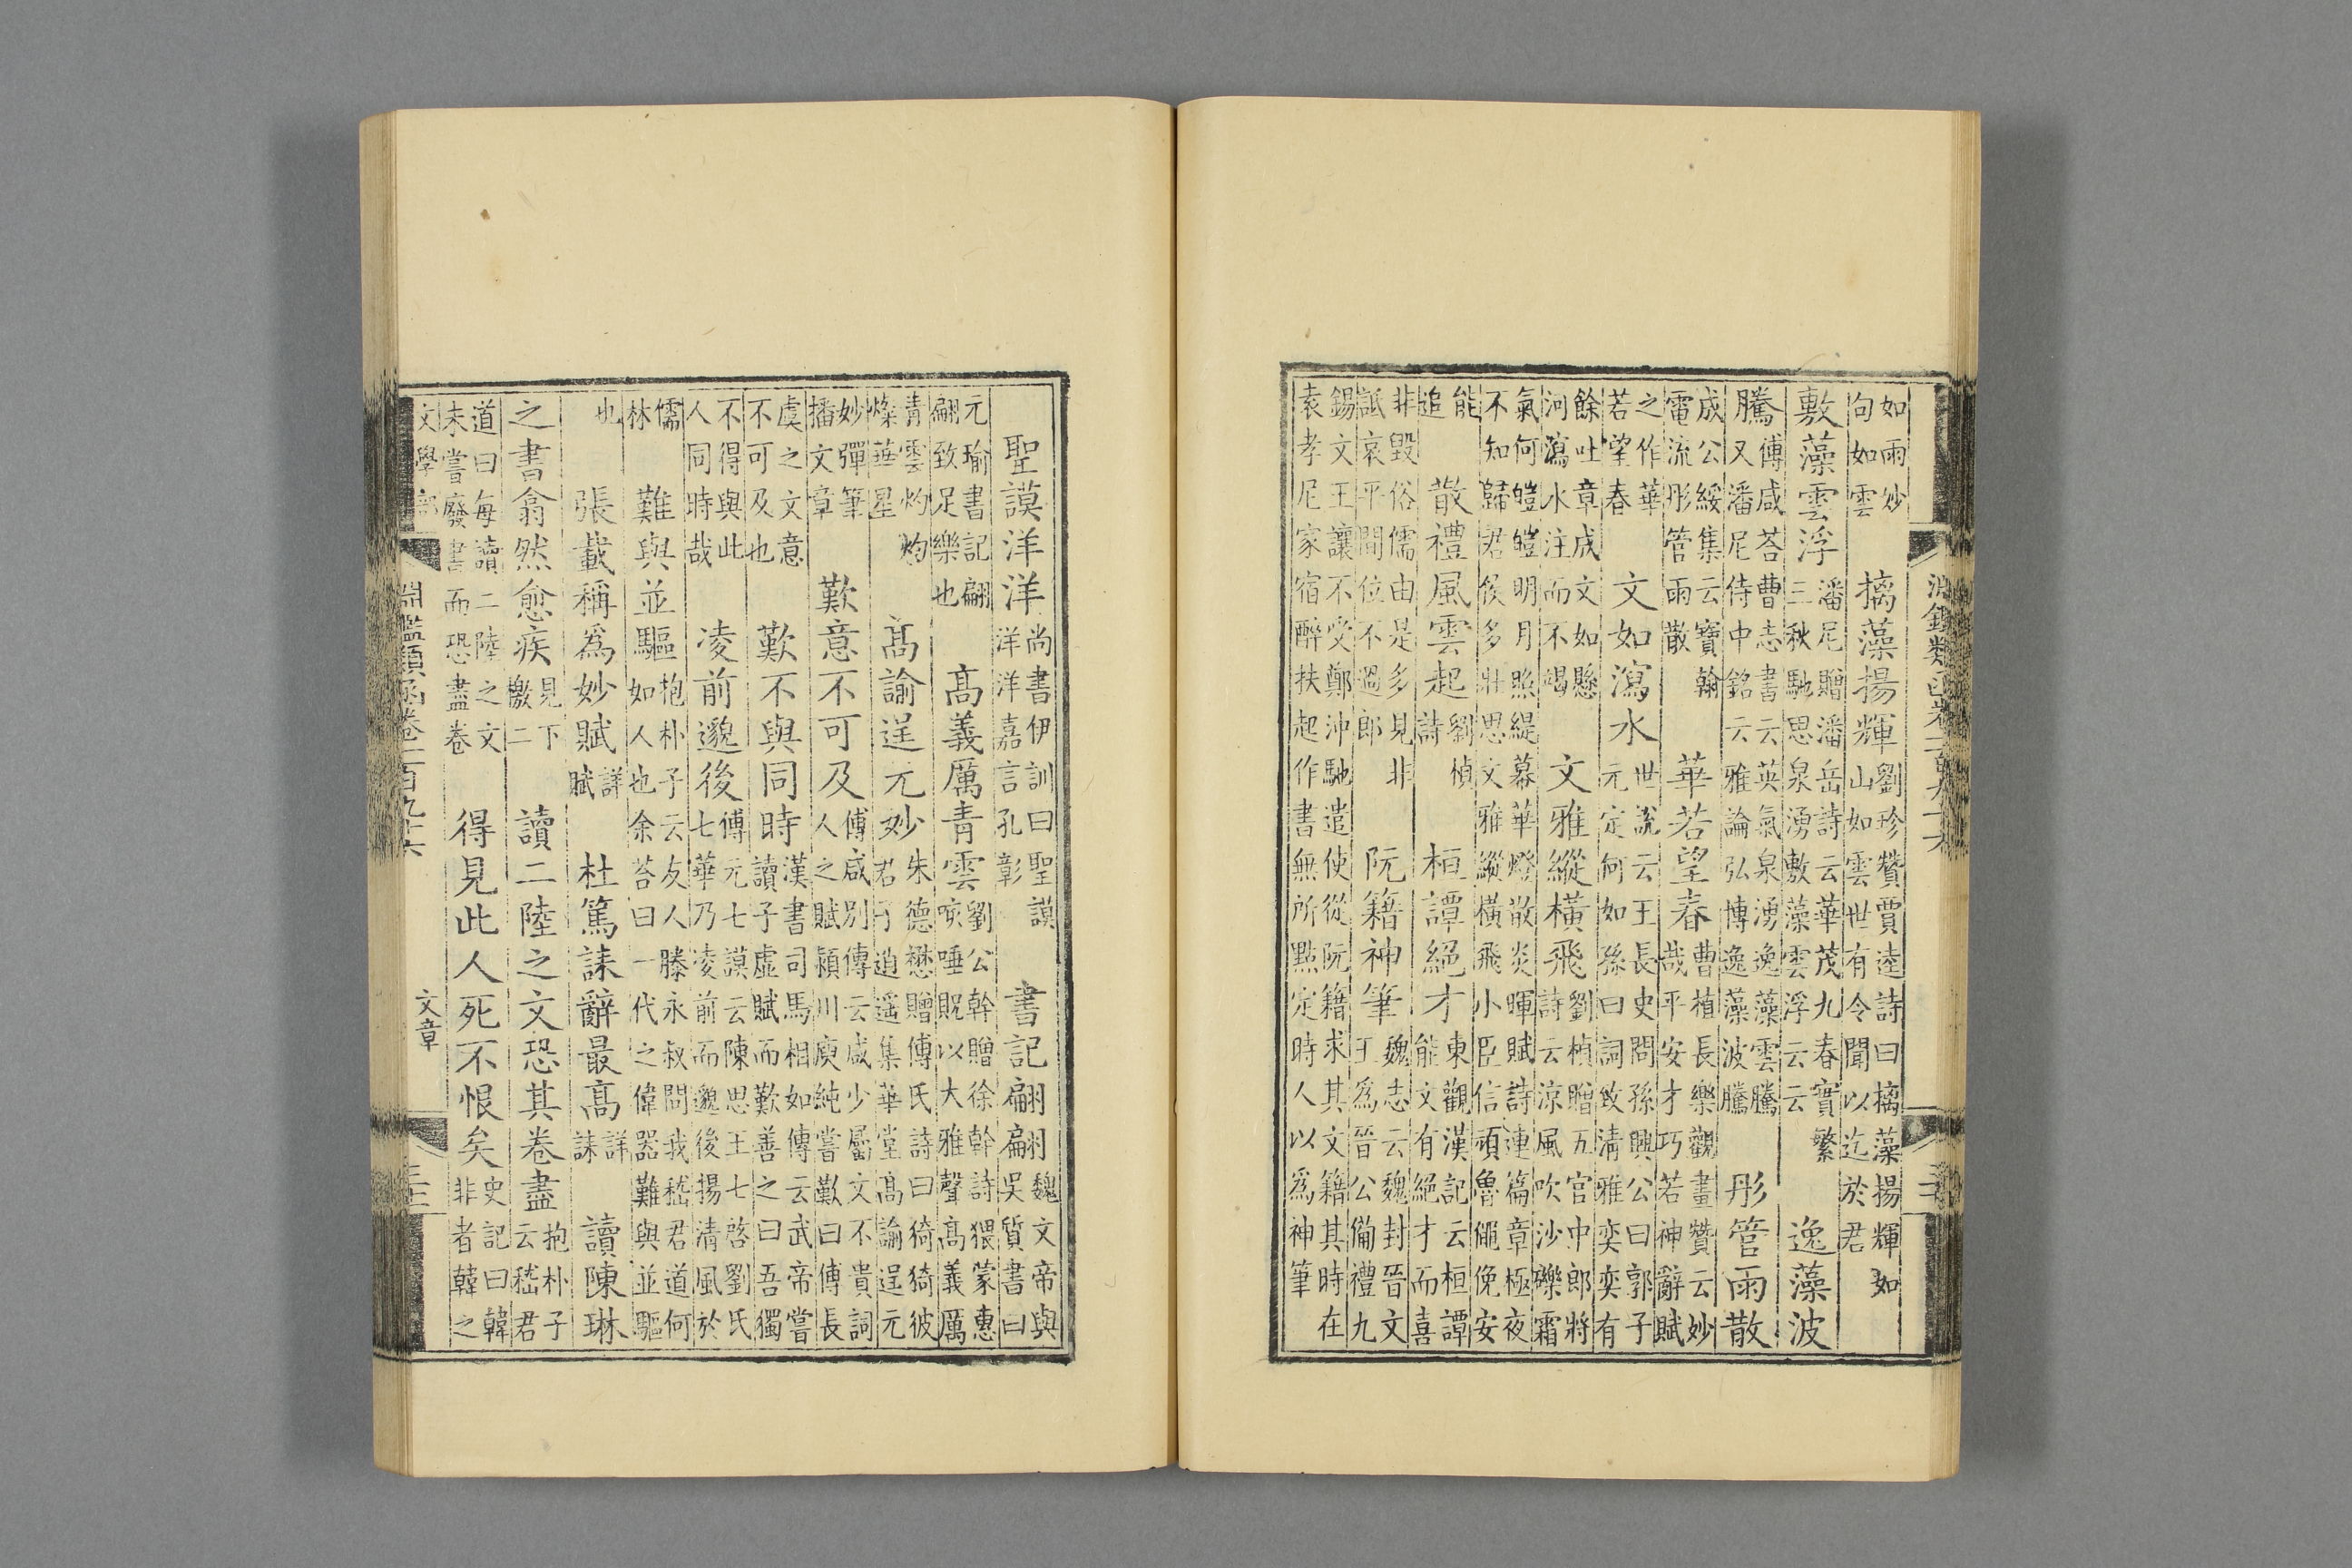 淵鑑類函卷一百九十六
如雨紗
句如雲
摛藻揚輝
劉珍贊賈逵詩曰摛藻揚輝如
山如雲世有令聞以迄於君
敷藻雲浮
潘尼贈潘岳詩云華茂九春實繁
三秋馳思泉湧敷藻雲浮云云
逸藻波
騰
傅咸荅曹志書云英氣泉湧逸藻雲騰
又潘尼侍中銘云雅論弘博逸藻波騰
彤管雨散
成公綏集云寶翰
電流彤管雨散
華若望春
曹植長樂觀畫贊云妙
哉平安才巧若神辭賦
之作華
若望春
文如瀉水
世說云王長史問孫興公曰郭子
元定何如孫曰詞致清雅奕奕有
餘吐章成文如懸
河瀉水注而不竭
文雅縱橫飛
劉楨贈五官中郎將
詩云涼風吹沙礫霜
氣何皚皚明月照緹幕華燈散炎暉賦詩連篇章極夜
不知歸君侯多壯思文雅縱橫飛小臣信頑魯僶俛安
能
追
散禮風雲起
劉楨
詩
桓譚絕才
東觀漢記云桓譚
能文有絕才而喜
非毀俗儒由是多見非
詆哀平間位不過郎
阮籍神筆
魏志云魏封晉文
王為晉公備禮九
錫文王讓不受鄭沖馳遣使從阮籍求其文籍其時在
袁孝尼家宿醉扶起作書無所點定時人以為神筆
聖謨洋洋
尚書伊訓曰聖謨
洋洋嘉言孔彰
書記翩翩
魏文帝與
吳質書曰
元瑜書記翩
翩致足樂也
高義厲青雲
劉公幹贈徐幹詩猥蒙惠
咳唾貺以大雅聲高義厲
青雲灼灼
燦華星
高諭逞元妙
朱德懋贈傅氏詩曰猗猗彼
君子逍遥集華堂高諭逞元
妙彈筆
播文章
歎意不可及
傅咸別傳云咸少屬文不貴詞
人之賦潁川庾純嘗歎曰傅長
虞之文意
不可及也
歎不與同時
漢書司馬相如傳云武帝嘗
讀子虛賦而歎善之曰吾獨
不得與此
人同時哉
凌前邈後
傅元七謨云陳思王七啓劉氏
七華乃凌前而邈後揚清風於
儒
林
難與並驅
抱朴子云友人滕永叔問我嵇君道何
如人也余荅曰一代之偉器難與並驅
也
張載稱為妙賦
詳
賦
杜篤誄辭最高
詳
誄
讀陳琳
之書翕然愈疾
見下
檄二
讀二陸之文恐其卷盡
抱朴子
云嵇君
道曰每讀二陸之文
未嘗廢書而恐盡卷
得見此人死不恨矣
史記曰韓
非者韓之
文學部
淵鑑類函卷一百九十六
文章